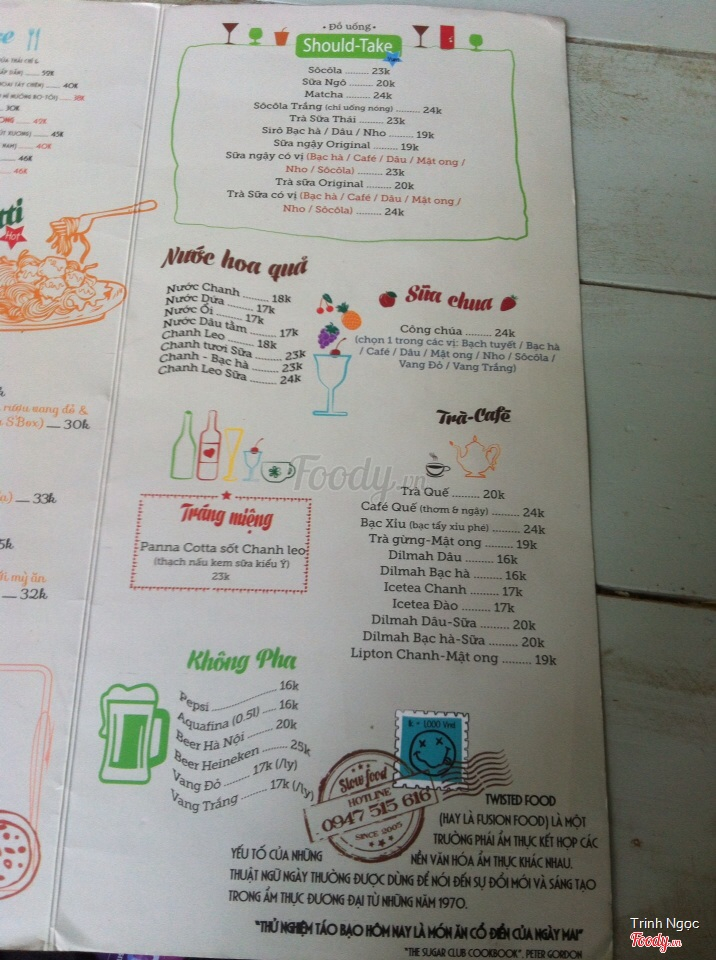 • Đồ uống •
Should-Take
Sôcôla ......... 23k
Sữa Ngô ......... 20k
Matcha ......... 24k
Sôcôla Trắng (chỉ uống nóng) ......... 24k
Trà Sữa Thái ......... 23k
Sirô Bạc hà / Dâu / Nho ......... 19k
Sữa ngậy Original ......... 19k
Sữa ngậy có vị (Bạc hà / Café / Dâu / Mật ong /
Nho / Sôcôla) ......... 23k
Trà sữa Original ......... 20k
Trà Sữa có vị (Bạc hà / Café / Dâu / Mật ong /
Nho / Sôcôla) ......... 24k
Nước hoa quả
Nước Chanh ......... 18k
Nước Dứa ......... 17k
Nước Ổi ......... 17k
Nước Dâu tằm ......... 17k
Chanh Leo ......... 18k
Chanh tươi Sữa ......... 23k
Chanh - Bạc hà ......... 23k
Chanh Leo Sữa ......... 24k
Sữa chua
Công chúa ......... 24k
(chọn 1 trong các vị: Bạch tuyết / Bạc hà
/ Café / Dâu / Mật ong / Nho / Sôcôla /
Vang Đỏ / Vang Trắng)
Trà-Café
Trà Quế ......... 20k
Café Quế (thơm & ngậy) ......... 24k
Bạc Xỉu (bạc tẩy xỉu phé) ......... 24k
Trà gừng-Mật ong ......... 19k
Dilmah Dâu ......... 16k
Dilmah Bạc hà ......... 16k
Icetea Chanh ......... 17k
Icetea Đào ......... 17k
Dilmah Dâu-Sữa ......... 20k
Dilmah Bạc hà-Sữa ......... 20k
Lipton Chanh-Mật ong ......... 19k
Tráng miệng
Panna Cotta sốt Chanh leo
(thạch nấu kem sữa kiểu Ý)
23k
Không Pha
Pepsi ......... 16k
Aquafina (0.5l) ..... 16k
Beer Hà Nội ...... 20k
Beer Heineken ........ 25k
Vang Đỏ ...... 17k (/ly)
Vang Trắng ...... 17k (/ly)
1k = 1,000 Vnđ
Slow food
HOTLINE
0947 515 616
SINCE 2005
TWISTED FOOD
(HAY LÀ FUSION FOOD) LÀ MỘT
TRƯỜNG PHÁI ẨM THỰC KẾT HỢP CÁC
YẾU TỐ CỦA NHỮNG NỀN VĂN HÓA ẨM THỰC KHÁC NHAU.
THUẬT NGỮ NGÀY THƯỜNG ĐƯỢC DÙNG ĐỂ NÓI ĐẾN SỰ ĐỔI MỚI VÀ SÁNG TẠO
TRONG ẨM THỰC ĐƯƠNG ĐẠI TỪ NHỮNG NĂM 1970.
"THỬ NGHIỆM TÁO BẠO HÔM NAY LÀ MÓN ĂN CỔ ĐIỂN CỦA NGÀY MAI"
"THE SUGAR CLUB COOKBOOK", PETER GORDON
rượu vang đỏ &
S'Box) — 30k
— 33k
mỳ ăn
— 32k
Foody.vn
Trinh Ngọc
Foody.vn